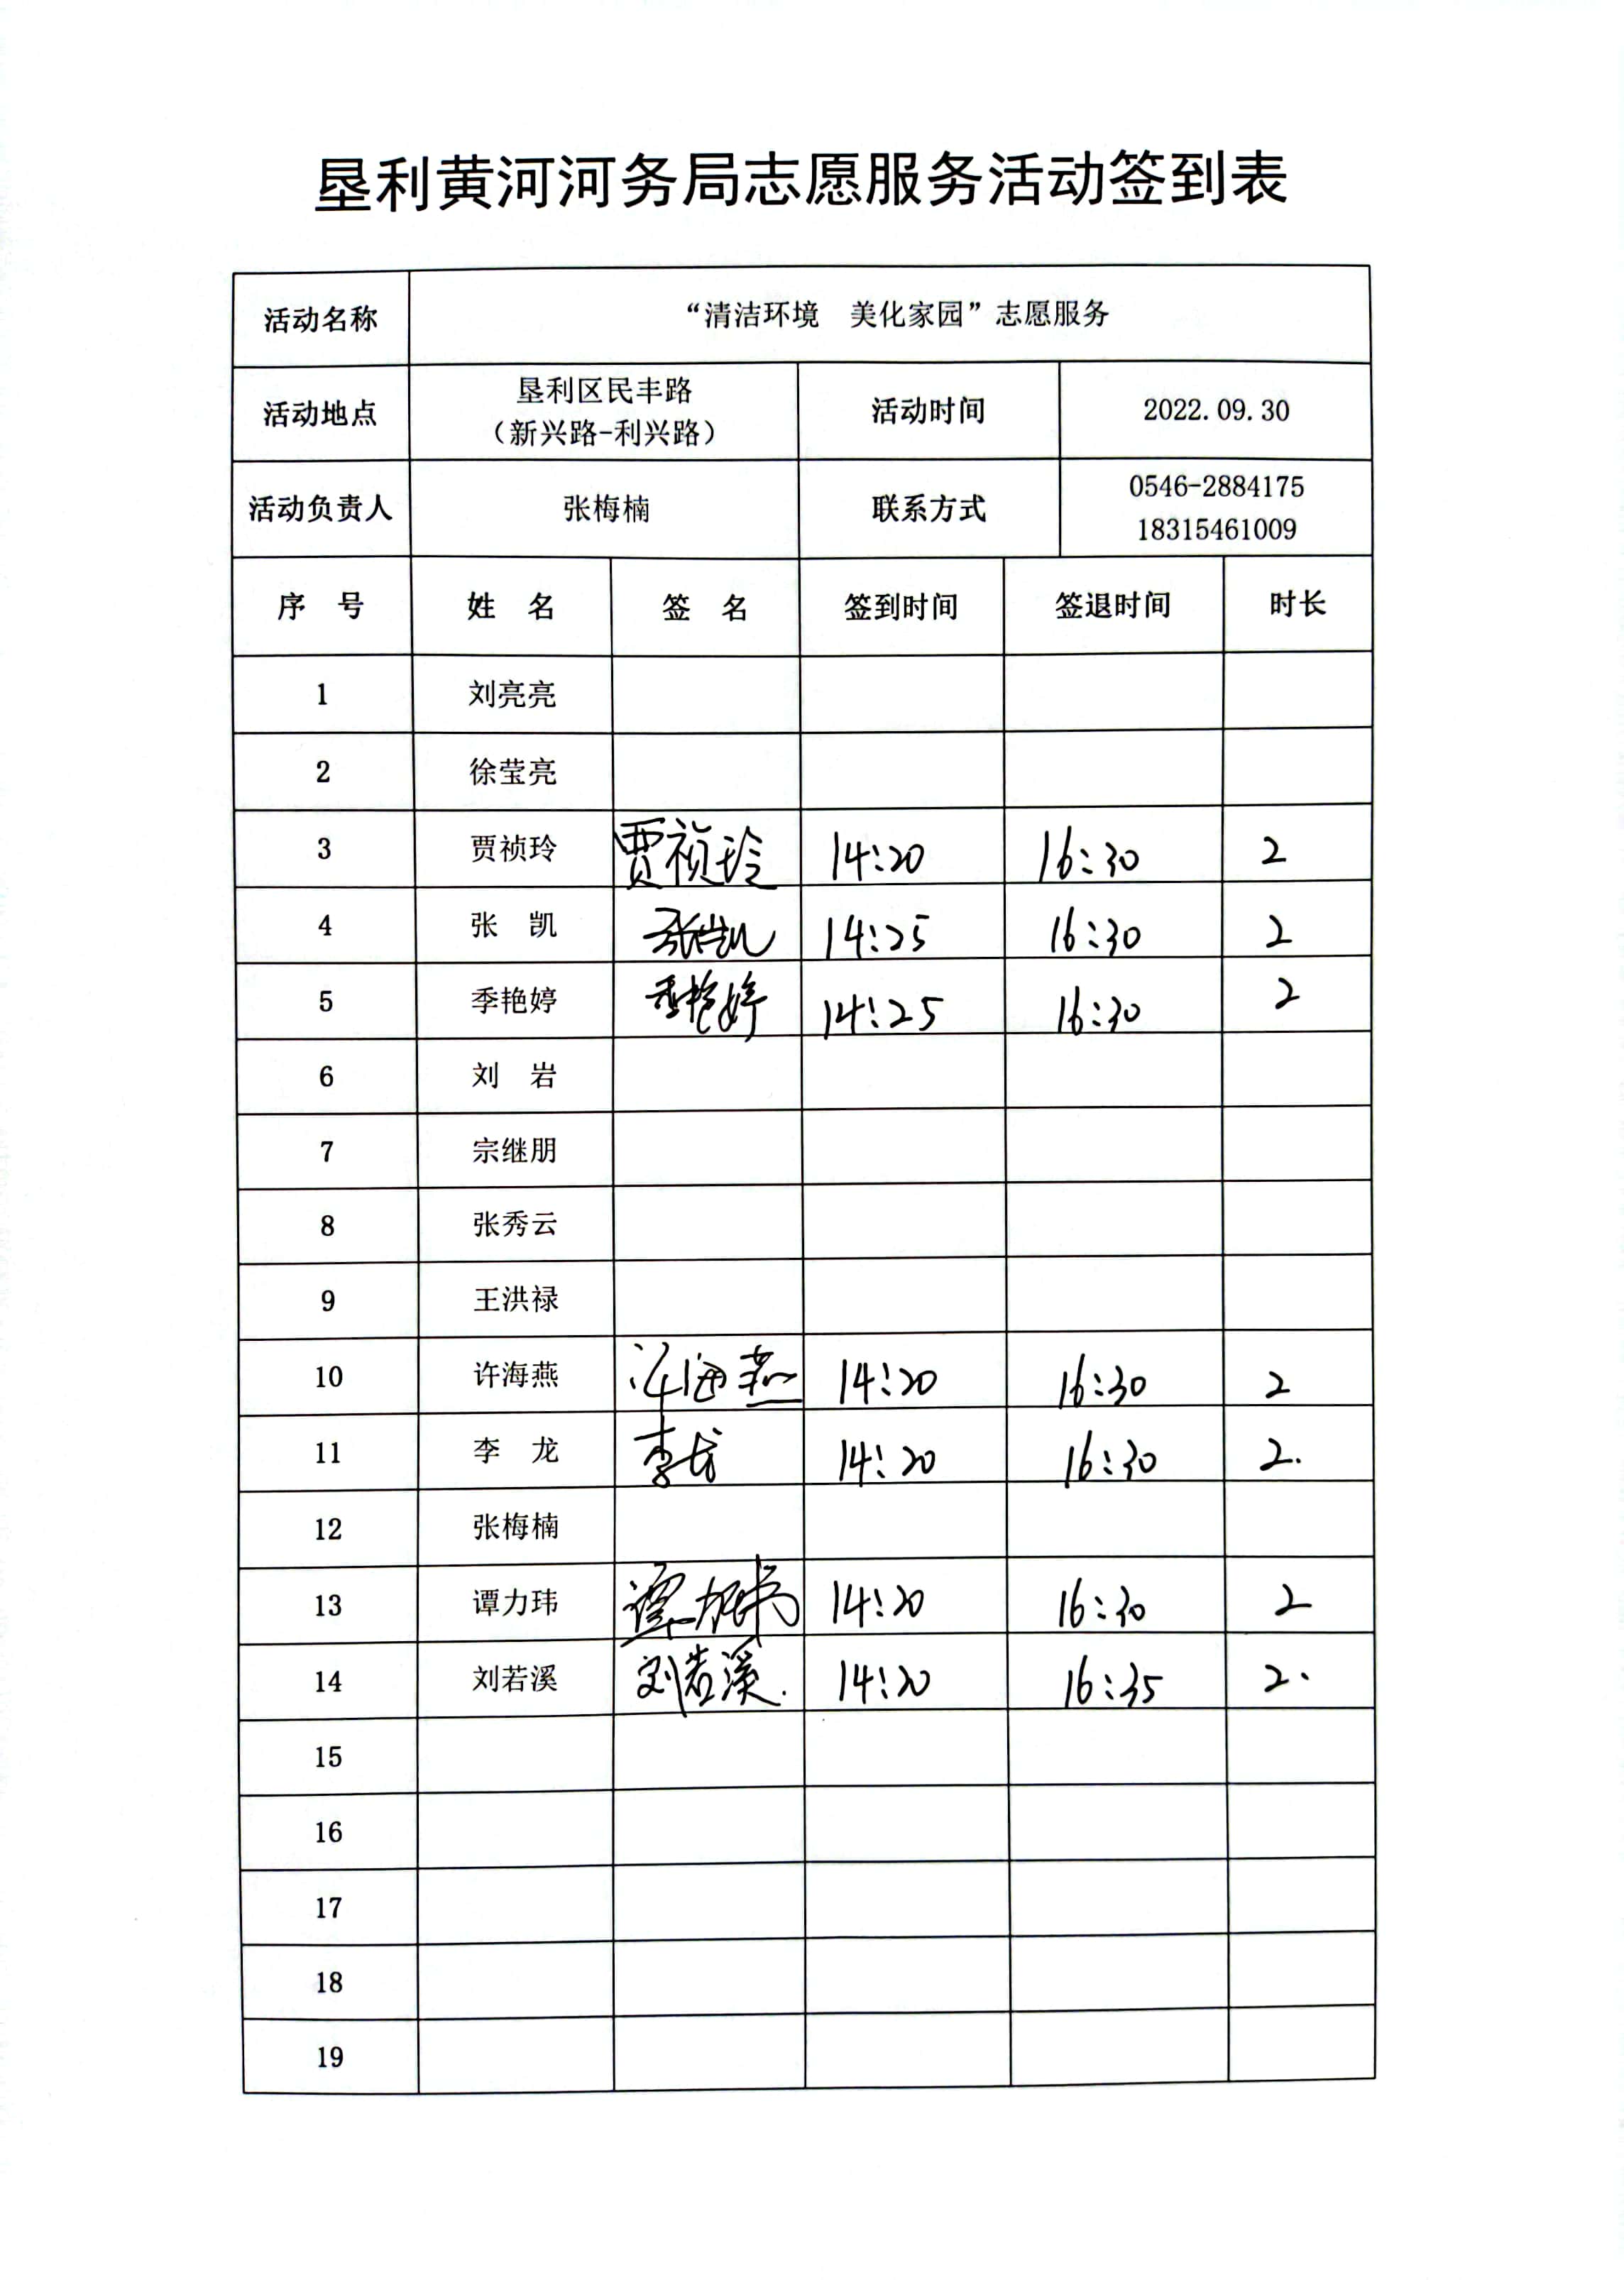 垦利黄河河务局志愿服务活动签到表
活动名称 “清洁环境　美化家园”志愿服务
活动地点 垦利区民丰路 活动时间 2022.09.30
（新兴路-利兴路）
活动负责人 张梅楠 联系方式 0546-2884175
18315461009
序　号 姓　名 签　名 签到时间 签退时间 时长
1 刘亮亮
2 徐莹亮
3 贾祯玲 贾祯玲 14:20 16:30 2
4 张　凯 张凯 14:25 16:30 2
5 季艳婷 季艳婷 14:25 16:30 2
6 刘　岩
7 宗继朋
8 张秀云
9 王洪禄
10 许海燕 许海燕 14:20 16:30 2
11 李　龙 李龙 14:20 16:30 2.
12 张梅楠
13 谭力玮 谭力玮 14:20 16:30 2
14 刘若溪 刘若溪. 14:20 16:35 2.
15
16
17
18
19